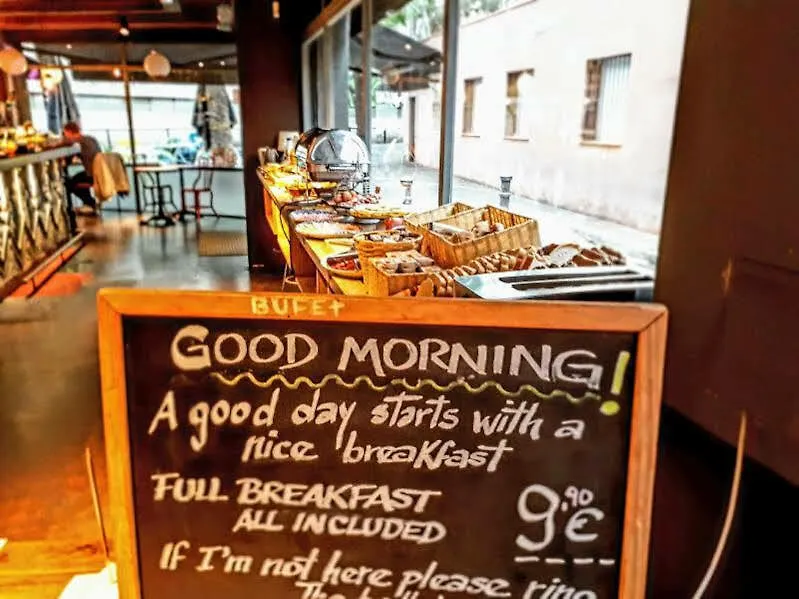 BUFET
GOOD MORNING!
A good day starts with a
nice breakfast
FULL BREAKFAST
ALL INCLUDED
9,90 €
If I'm not here please ring
The